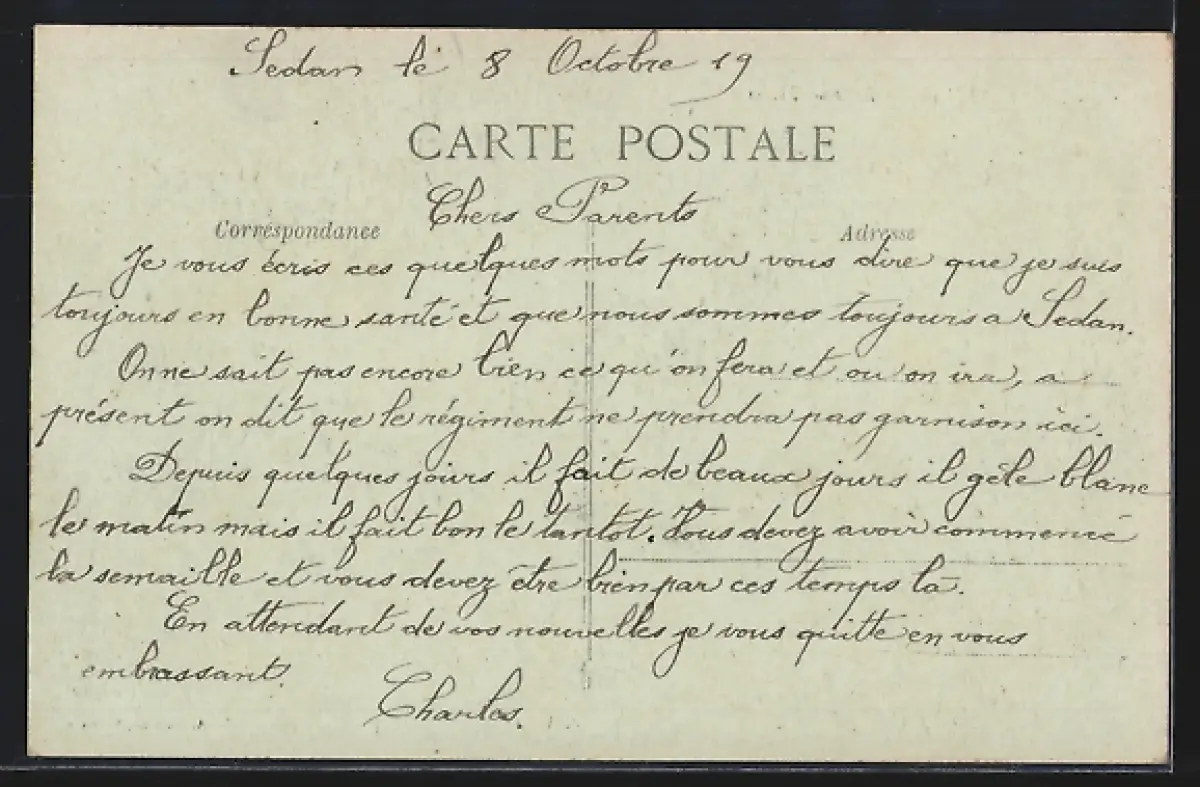 Sedan le 8 Octobre 19
CARTE POSTALE
Chers Parents
Correspondance
Adresse
Je vous écris ces quelques mots pour vous dire que je suis
toujours en bonne santé et que nous sommes toujours a Sedan.
On ne sait pas encore bien ce qu'on fera et ou on ira, a
présent on dit que le régiment ne prendra pas garnison ici.
Depuis quelques jours il fait de beaux jours il gèle blanc
le matin mais il fait bon le tantot. Vous devez avoir commencé
la semaille et vous devez être bien par ces temps la.
En attendant de vos nouvelles je vous quitte en vous
embrassant.
Charles.